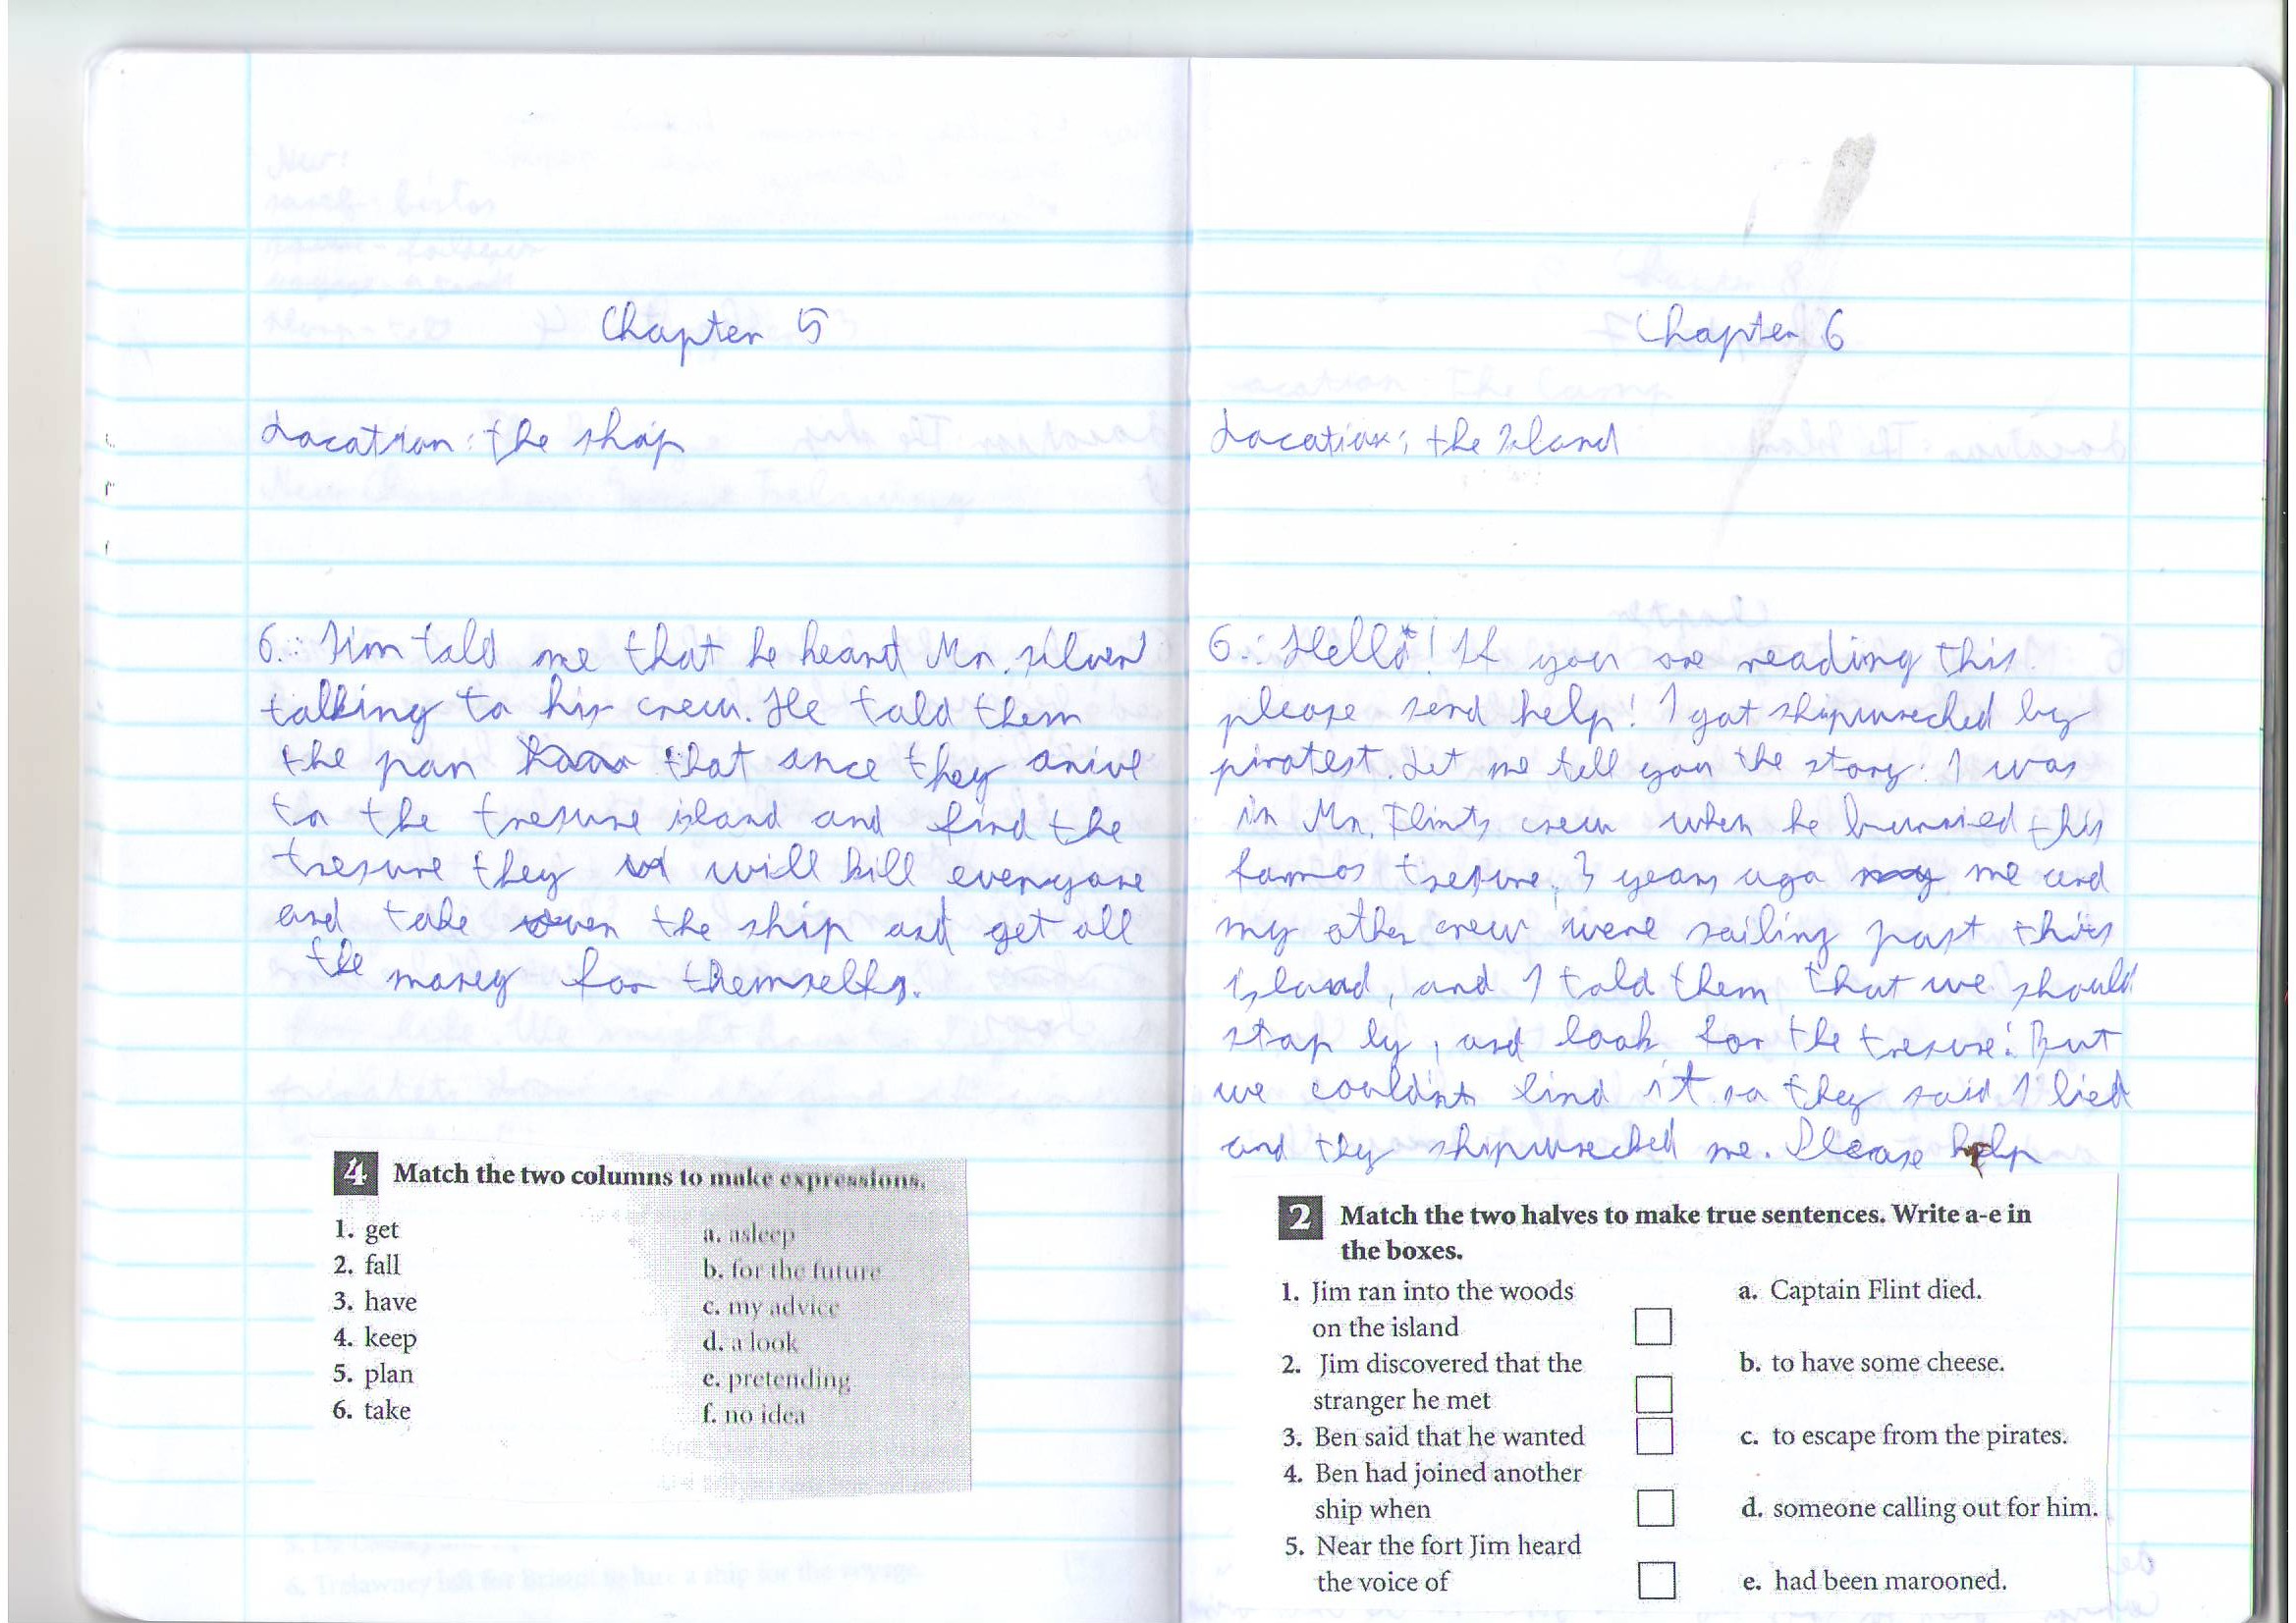 Chapter 5
Location: the ship
6.: Jim told me that he heard Mr. Silver
talking to his crew. He told them
the pan that once they arive
to the tresure island and find the
tresure they will kill everyone
and take over the ship and get all
the money for themselfs.
4 Match the two columns to make expressions.
1. get a. asleep
2. fall b. for the future
3. have c. my advice
4. keep d. a look
5. plan e. pretending
6. take f. no idea
Chapter 6
Location: the Island
6.: Hello! If you are reading this
please send help! I got shipwrecked by
piratest. Let me tell you the story: I was
in Mr. Flints crew when he burried this
famos tresure, 3 years ago me and
my other crew were sailing past this
island, and I told them that we should
stop by, and look for the tresure. But
we couldnt find it so they said I lied
and they shipwrecked me. Please help
2 Match the two halves to make true sentences. Write a-e in
the boxes.
1. Jim ran into the woods a. Captain Flint died.
on the island
2. Jim discovered that the b. to have some cheese.
stranger he met
3. Ben said that he wanted c. to escape from the pirates.
4. Ben had joined another
ship when d. someone calling out for him.
5. Near the fort Jim heard
the voice of e. had been marooned.